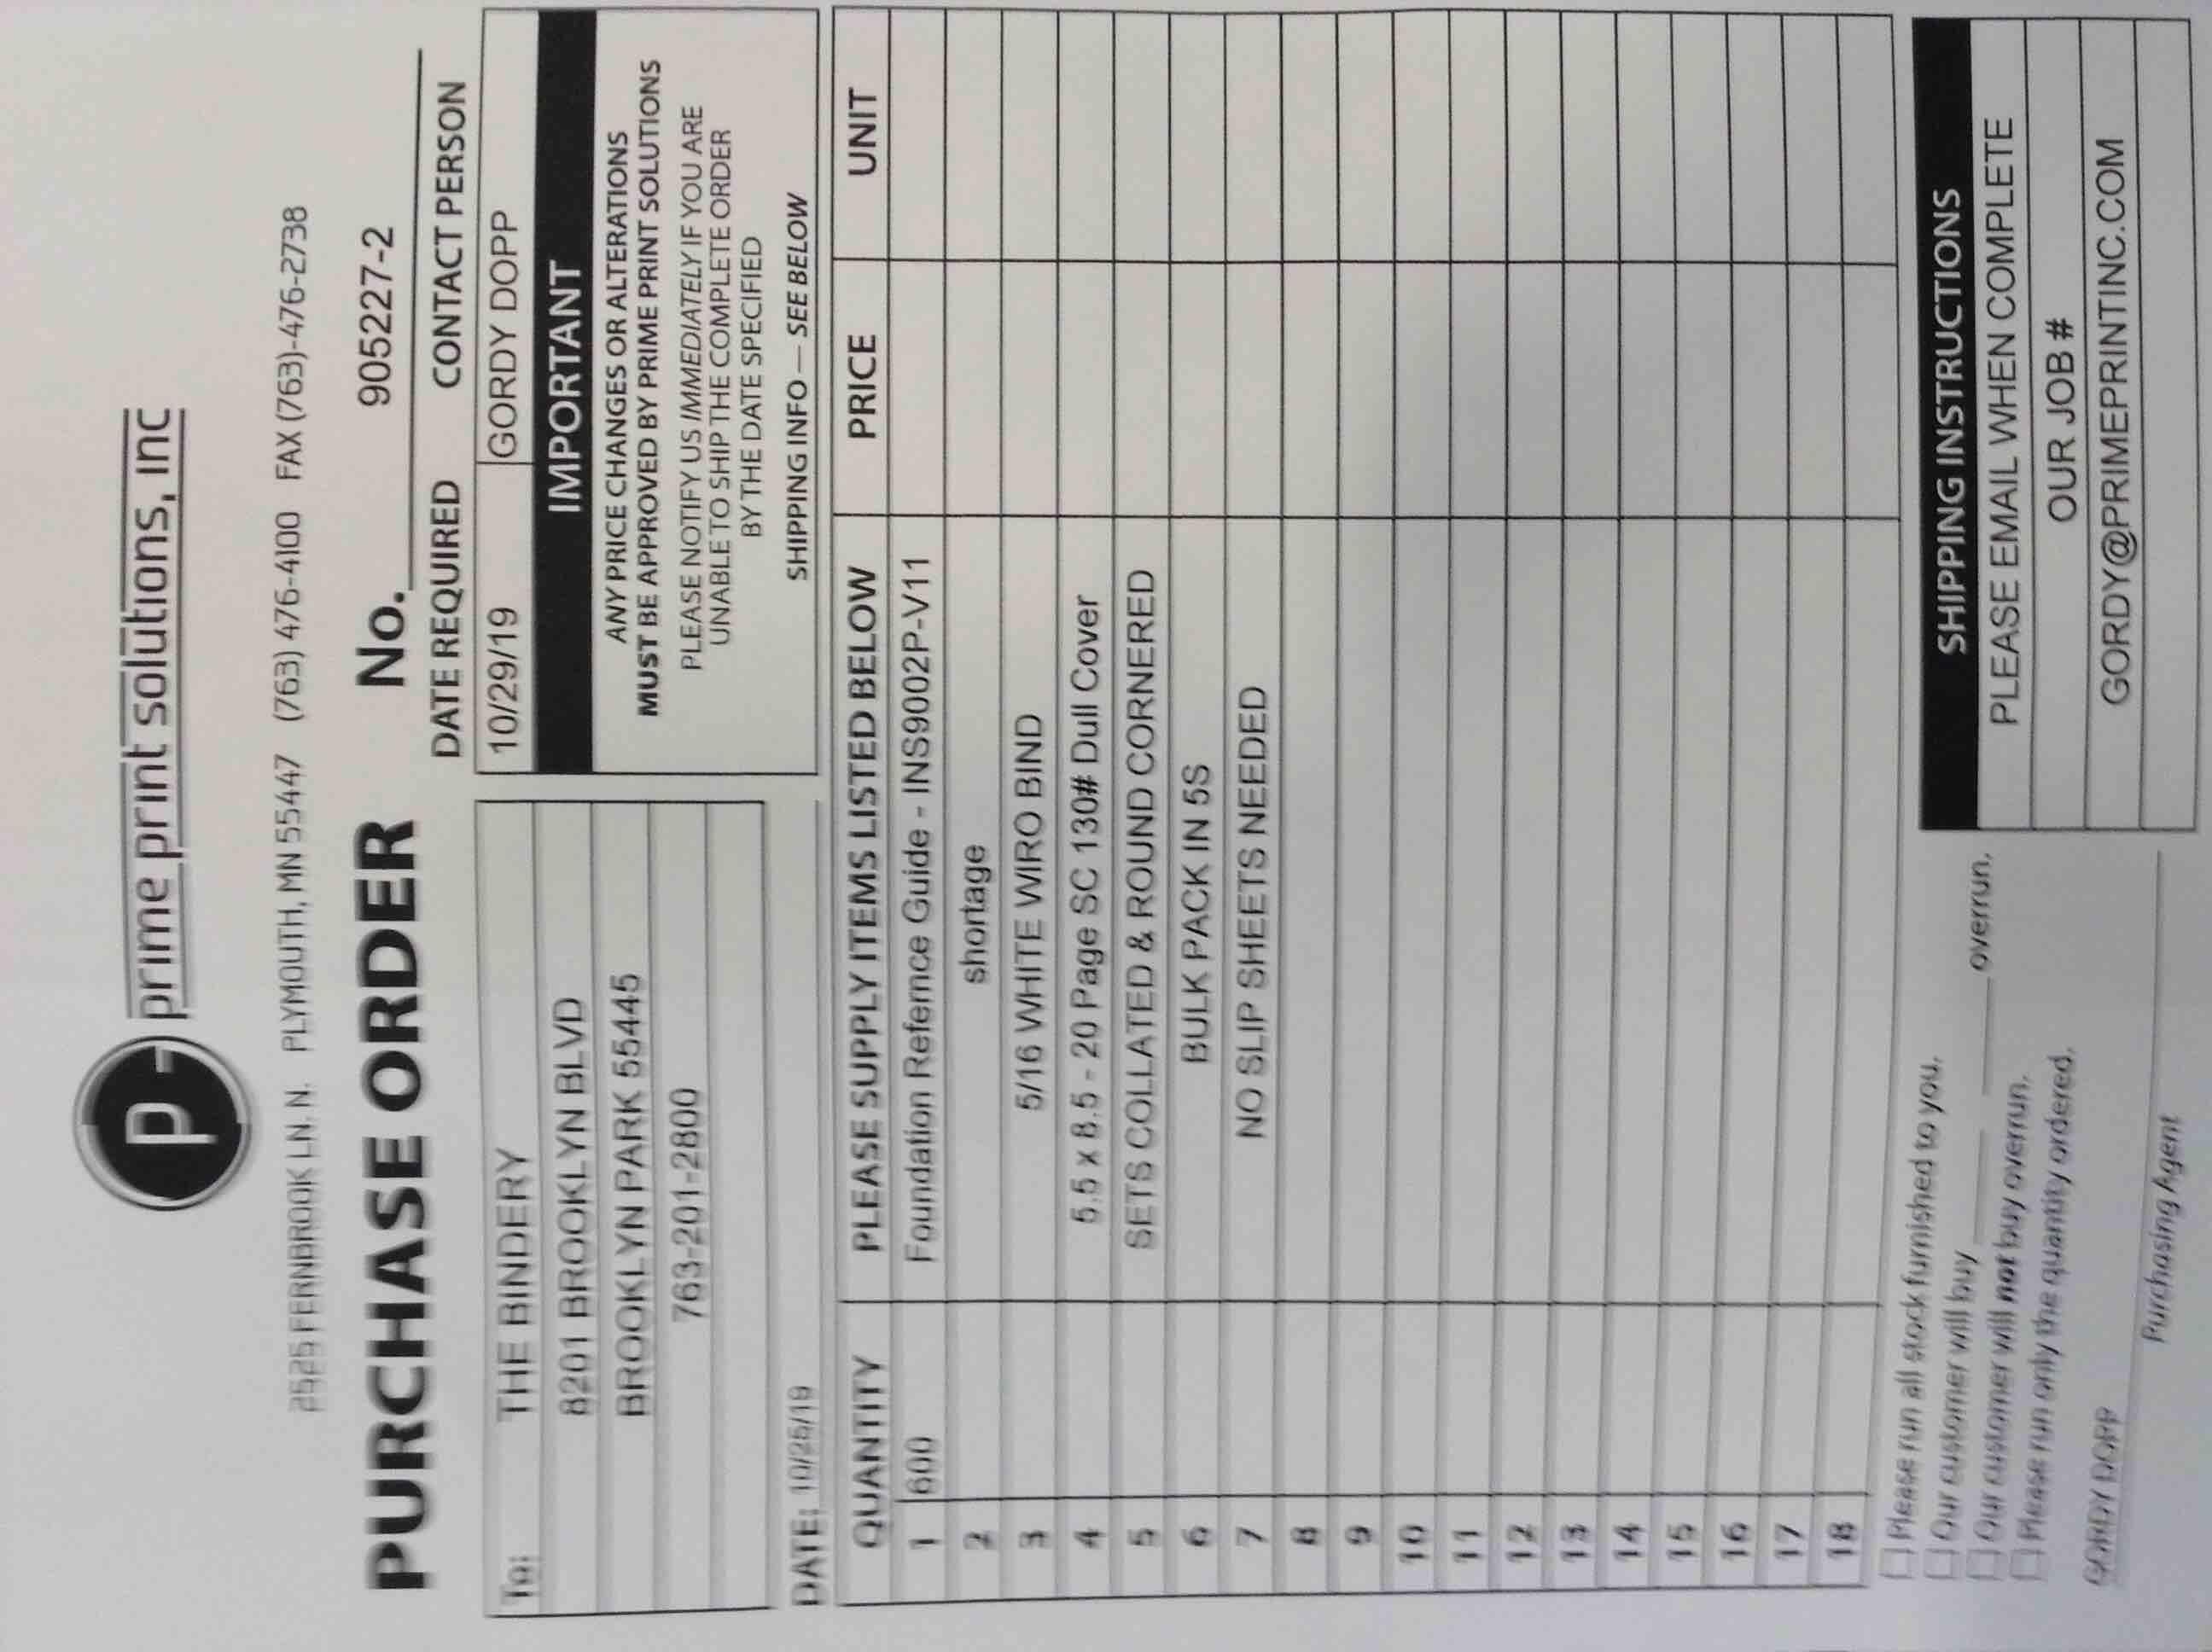 P- prime print solutions, inc
2525 FERNBROOK LN. N. PLYMOUTH, MN 55447 (763) 476-4100 FAX (763)-476-2738
PURCHASE ORDER No. 905227-2
DATE REQUIRED CONTACT PERSON
To: THE BINDERY
8201 BROOKLYN BLVD
BROOKLYN PARK 55445
763-201-2800
10/29/19 GORDY DOPP
IMPORTANT
ANY PRICE CHANGES OR ALTERATIONS
MUST BE APPROVED BY PRIME PRINT SOLUTIONS
PLEASE NOTIFY US IMMEDIATELY IF YOU ARE
UNABLE TO SHIP THE COMPLETE ORDER
BY THE DATE SPECIFIED
SHIPPING INFO — SEE BELOW
DATE: 10/25/19
QUANTITY PLEASE SUPPLY ITEMS LISTED BELOW PRICE UNIT
1 600 Foundation Refernce Guide - INS9002P-V11
2 shortage
3 5/16 WHITE WIRO BIND
4 5.5 x 8.5 - 20 Page SC 130# Dull Cover
5 SETS COLLATED & ROUND CORNERED
6 BULK PACK IN 5S
7 NO SLIP SHEETS NEEDED
8
9
10
11
12
13
14
15
16
17
18
Please run all stock furnished to you.
Our customer will buy ______ overrun.
Our customer will not buy overrun.
Please run only the quantity ordered.
GORDY DOPP
Purchasing Agent
SHIPPING INSTRUCTIONS
PLEASE EMAIL WHEN COMPLETE
OUR JOB #
GORDY@PRIMEPRINTINC.COM